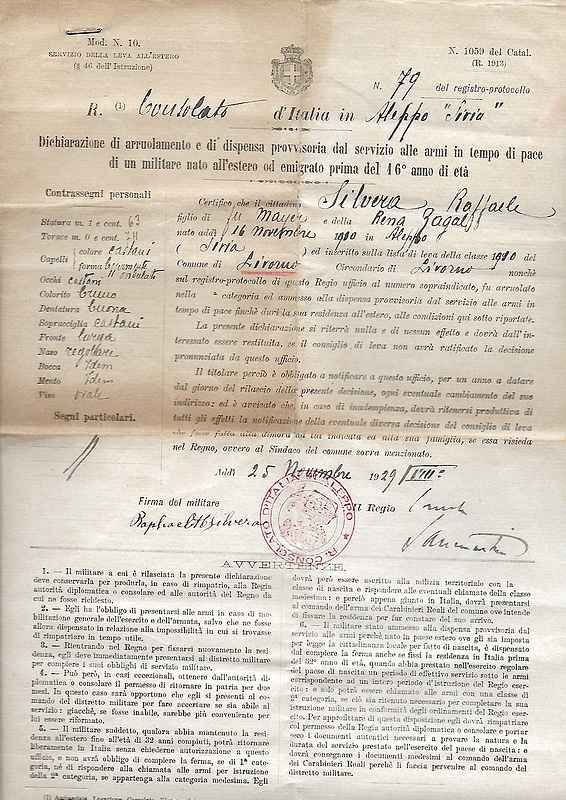 Mod. N. 10.
SERVIZIO DELLA LEVA ALL'ESTERO
(§ 46 dell'Istruzione)
N. 1059 del Catal.
(R. 1913)
N. 79 del registro-protocollo
R. (1) Consolato d'Italia in Aleppo "Siria"
Dichiarazione di arruolamento e di dispensa provvisoria dal servizio alle armi in tempo di pace
di un militare nato all'estero od emigrato prima del 16° anno di età
Contrassegni personali
Statura m. 1 e cent. 63
Torace m. 0 e cent.
Capelli colore castani
forma
Occhi castani
Colorito bruno
Dentatura buona
Sopracciglia castani
Fronte larga
Naso regolare
Bocca Idem
Mento Idem
Viso ovale
Segni particolari.
Certifico che il cittadino Silvera Raffaele
figlio di Mayer e della Rena
nato addì 16 novembre 1910 in Aleppo
(Siria) ed inscritto sulla lista di leva della classe 1910 del
Comune di Livorno Circondario di Livorno nonchè
sul registro-protocollo di questo Regio ufficio al numero sopraindicato, fu arruolato
nella categoria ed ammesso alla dispensa provvisoria dal servizio alle armi in
tempo di pace finchè duri la sua residenza all'estero, alle condizioni qui sotto riportate.
La presente dichiarazione si riterrà nulla e di nessun effetto e dovrà dall'in-
teressato essere restituita, se il consiglio di leva non avrà ratificato la decisione
pronunciata da questo ufficio.
Il titolare perciò è obbligato a notificare a questo ufficio, per un anno a datare
dal giorno del rilascio della presente decisione, ogni eventuale cambiamento del suo
indirizzo: ed è avvisato che, in caso di inadempienza, dovrà ritenersi produttiva di
tutti gli effetti la notificazione della eventuale diversa decisione del consiglio di leva
che fosse fatta alla dimora da lui indicata ed alla sua famiglia, se essa risieda
nel Regno, ovvero al Sindaco del comune sovra menzionato.
Addì 25 Novembre 1929
Firma del militare
Il Regio
R. CONSOLATO D'ITALIA IN ALEPPO
AVVERTENZE.
1. — Il militare a cui è rilasciata la presente dichiarazione
deve conservarla per produrla, in caso di rimpatrio, alla Regia
autorità diplomatica o consolare ed alle autorità del Regno da
cui ne fosse richiesto.
2. — Egli ha l'obbligo di presentarsi alle armi in caso di mo-
bilitazione generale dell'esercito e dell'armata, salvo che ne fosse
allora dispensato in relazione alla impossibilità in cui si trovasse
di rimpatriare in tempo utile.
3. — Rientrando nel Regno per fissarvi nuovamente la resi-
denza, egli deve immediatamente presentarsi al distretto militare
per compiere i suoi obblighi di servizio militare.
4. — Può però, in casi eccezionali, ottenere dall'autorità di-
plomatica o consolare il permesso di ritornare in patria per due
mesi. In questo caso sarà opportuno che egli si presenti al co-
mando del distretto militare per fare accertare se sia abile al
servizio: giacchè, se fosse inabile, sarebbe più conveniente per
lui essere riformato.
5. — Il militare suddetto, qualora abbia mantenuta la resi-
denza all'estero fino all'età di 32 anni compiuti, potrà ritornare
liberamente in Italia senza chiederne autorizzazione a questo
ufficio, e non avrà obbligo di compiere la ferma, se di 1ª cate-
goria, nè di rispondere alla chiamata alle armi per istruzione
della 2ª categoria, se appartenga alla categoria medesima. Egli
dovrà però essere ascritto alla milizia territoriale con la
classe di nascita e rispondere alle eventuali chiamate della classe
medesima: e perciò appena giunto in Italia, dovrà presentarsi
al comando dell'arma dei Carabinieri Reali del comune ove intenda
di fissare la residenza per far constare del suo arrivo.
6. — Il militare stato ammesso alla dispensa provvisoria dal
servizio alle armi perchè nato in paese estero ove gli sia imposta
per legge la cittadinanza locale per fatto di nascita, è dispensato
dal compiere la ferma anche se fissi la residenza in Italia prima
del 32° anno di età, quando abbia prestato nell'esercito regolare
del paese di nascita un periodo di effettivo servizio sotto le armi
corrispondente ad un intero periodo d'istruzione del Regio eser-
cito: e solo potrà essere chiamato alle armi con una classe di
2ª categoria, se ciò sia ritenuto necessario per completare la sua
istruzione militare in conformità degli ordinamenti del Regio eser-
cito. Per approfittare di questa disposizione egli dovrà rimpatriare
col permesso della Regia autorità diplomatica o consolare e portare
con sè documenti autentici a provare la natura e la
durata del servizio prestato nell'esercito del paese di nascita e
dovrà consegnare i documenti medesimi al comando dell'arma
dei Carabinieri Reali perchè li faccia pervenire al comando del
distretto militare.